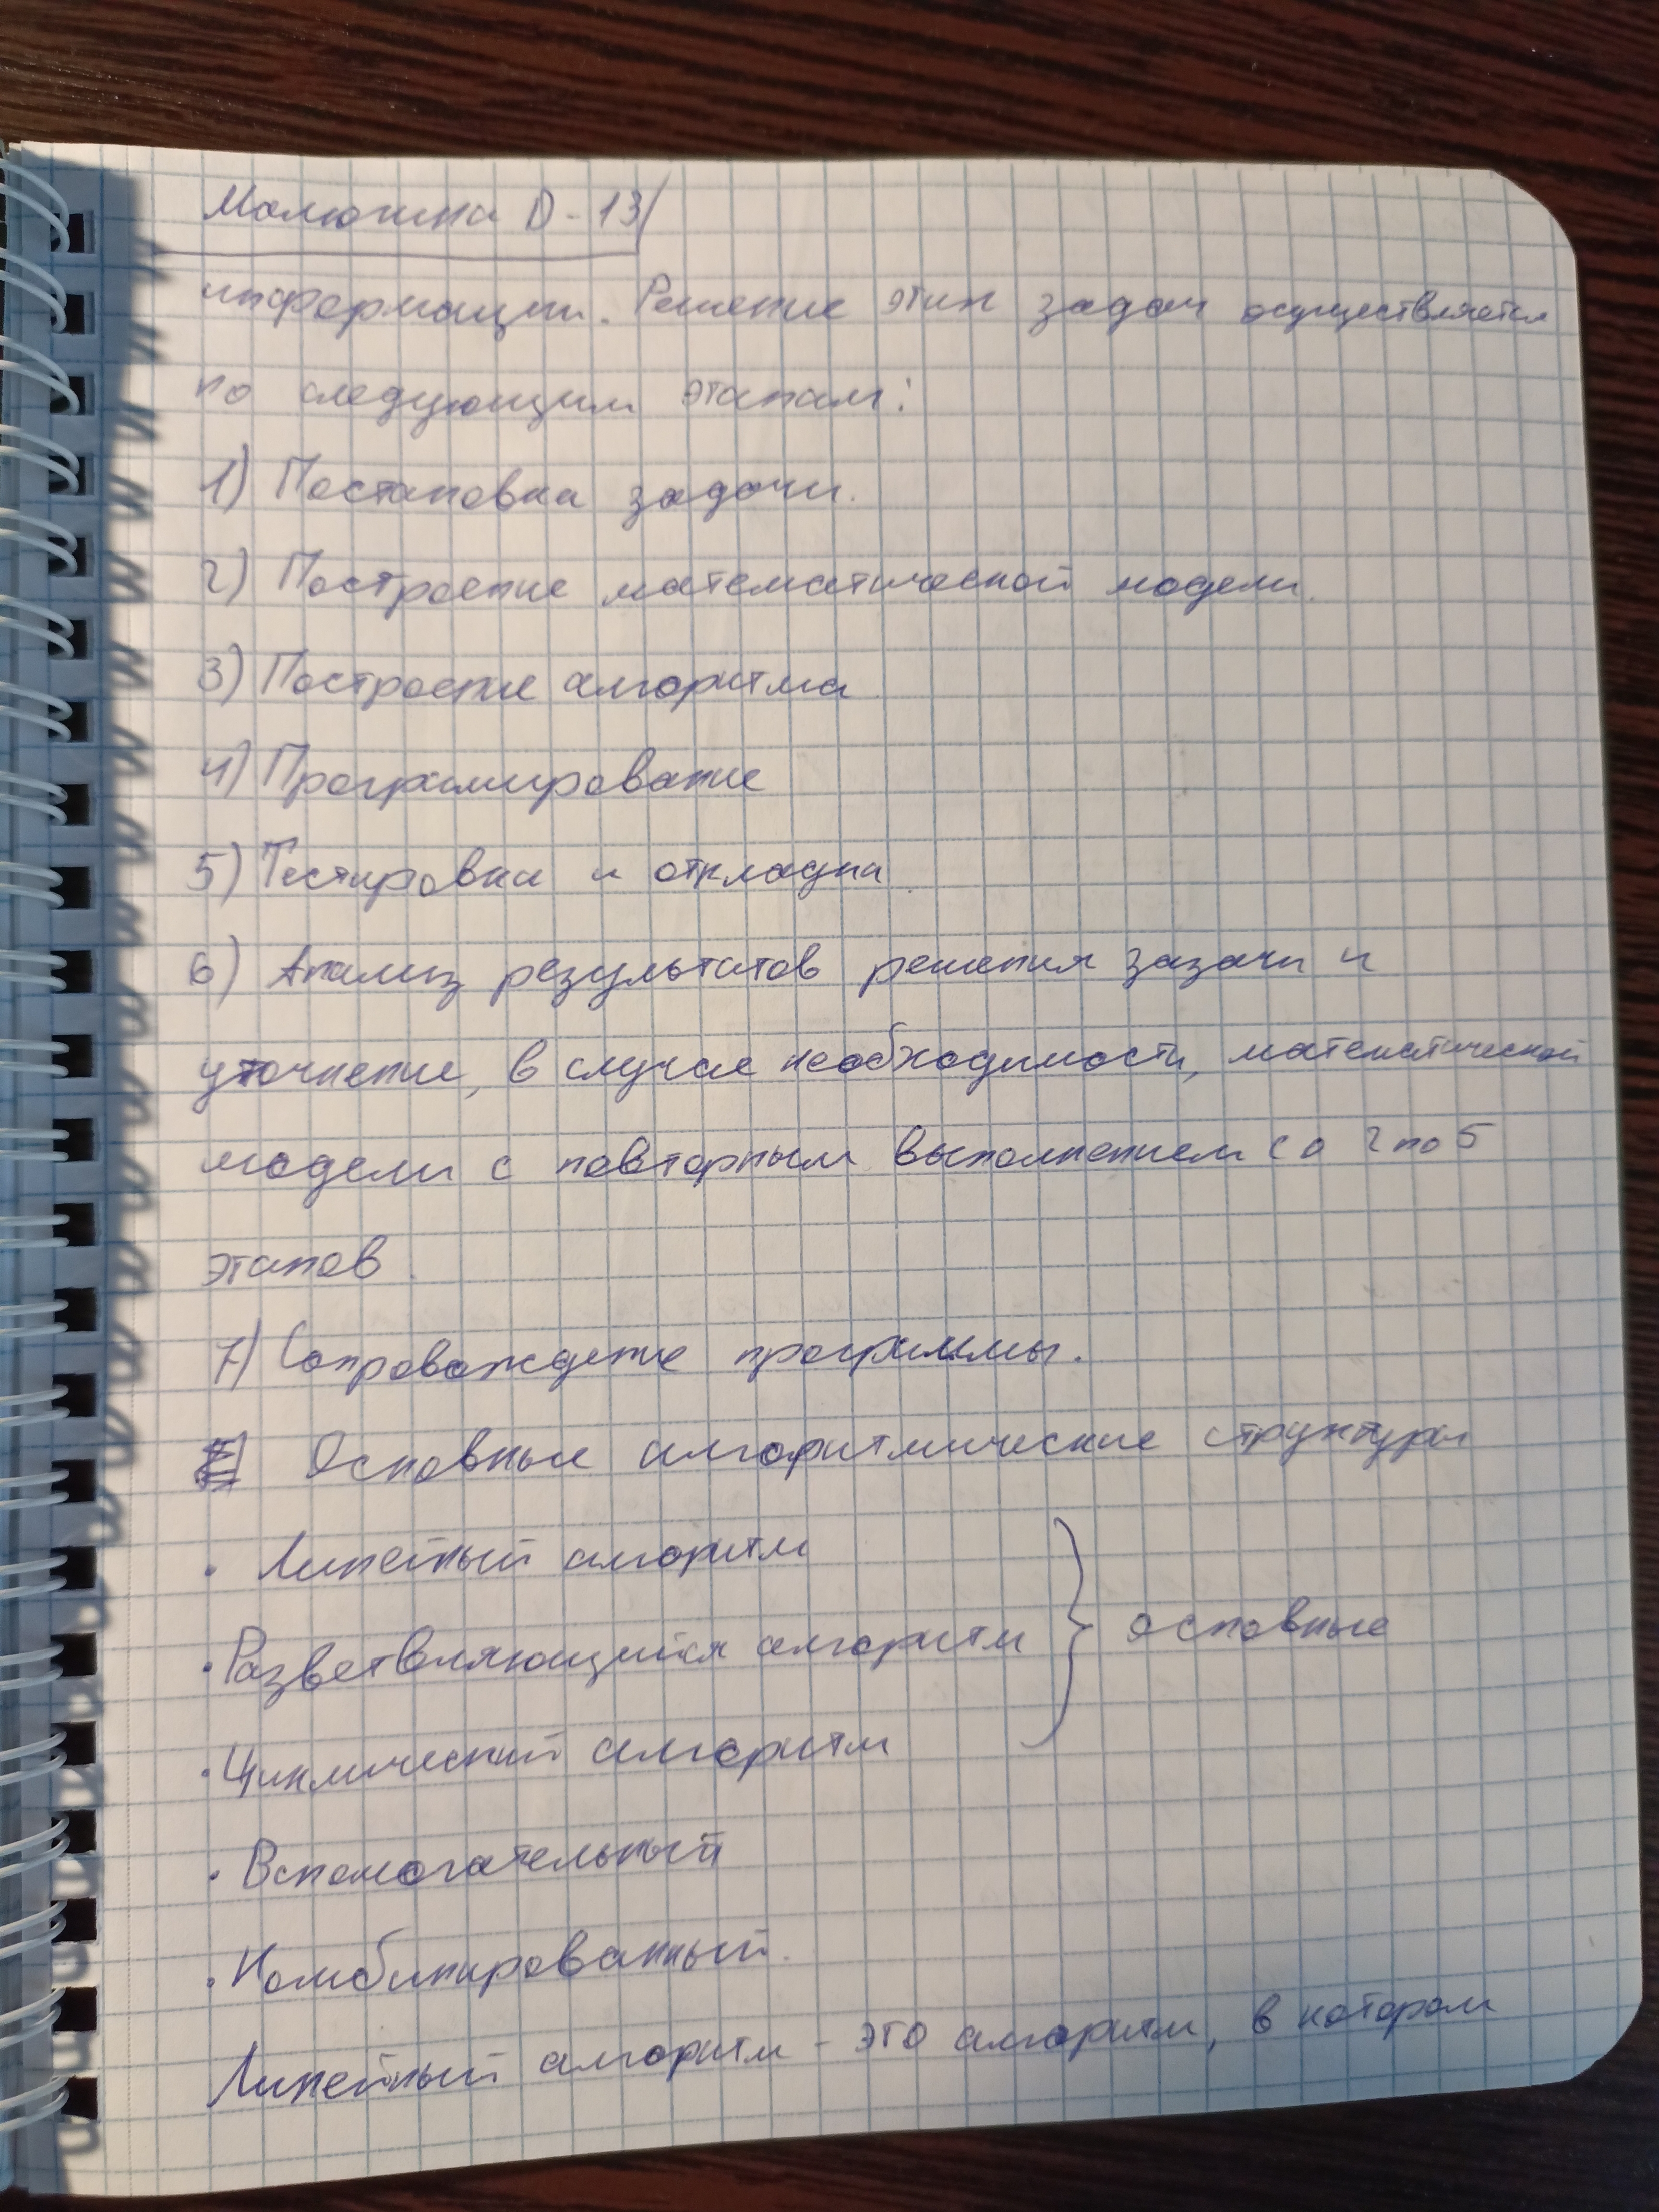 Малютина D-13
информации. Решение этих задач осуществляется
по следующим этапам:
1) Постановка задачи.
2) Построение математической модели.
3) Построение алгоритма
4) Програмирование
5) Тестировка и откладка.
6) Анализ результатов решения зазачи и
уточнение, в случае необходимости, математической
модели с повторным выполнением со 2 по 5
этапов.
7) Сопровождение программы.
Основные алгоритмические структуры
· Линейный алгоритм
· Разветвляющийся алгоритм } основные
· Циклический алгоритм
· Вспомогательный
· Комбинированный.
Линейный алгоритм - это алгоритм, в котором